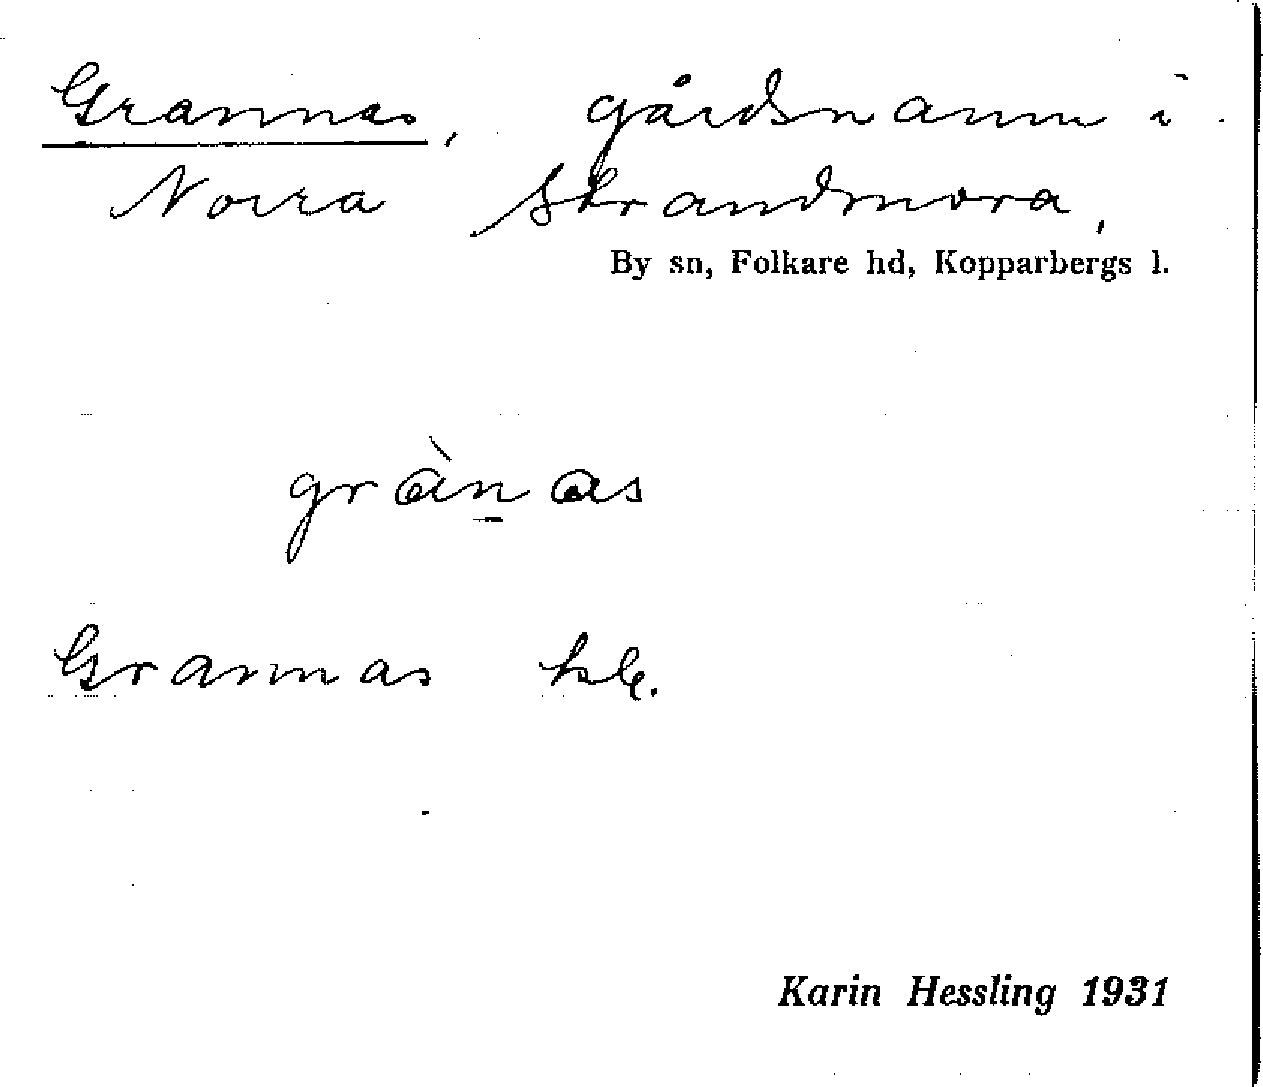 Grannas, gårdsnamn i
Norra Strandmora,
By sn, Folkare hd, Kopparbergs l.
grànas
Grannas
Karin Hessling 1931